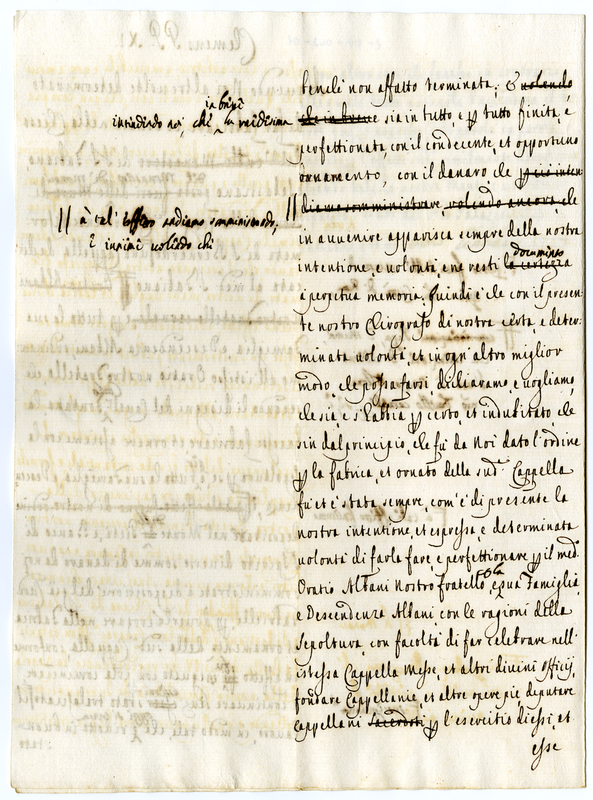 bencħè non affatto terminata; & volendo
intendendo noi, che in brevè la medesima
che in breve sia in tutto, e ꝑ tutto finita, e
perfettionata, con il condecente, et opportuno
ornamento, con il danaro che ꝑ ciò inten-
// à tal' effetto andiamo somministrando,
// diamo somministrare, volendo ancora che
è inoltre volendo che
in avvenire apparisca sempre della nostra
intentione, e volontà, e ne resti la certezza documento
à perpetua memoria. Quindi è che con il presen-
te nostro Chirografo di nostra certa, e deter-
minata volontà, et in ogn' altro miglior
modo, che possa farsi dichiaramo, e vogliamo,
che sia, e s' habbia ꝑ certo, et indubitato che
sin dal principio, che fù da Noi dato l'ordine
ꝑ la fabrica, et ornato della sud.ᵃ Cappella
fù et è stata sempre, com' è di presente la
nostra intentione, et espressa, e determinata
volontà di farla fare, e perfettionare ꝑ il med.
Oratio Albani Nostro fratello, e sua Famiglia,
e Descendenza Albani, con le ragioni della
sepoltura, con facoltà di far celebrare nell'
istessa Cappella Messe, et altri divini officij,
fondare Cappellanie, et altre opere pie deputare
Cappellani Sacerdoti ꝑ l'esercitio di essi, et
esse